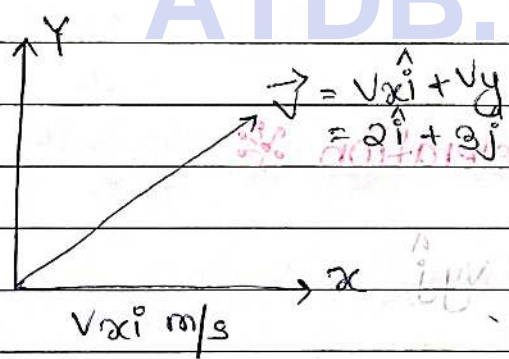 ATDB.
Y
V⃗ = Vxî + Vy
= 2î + 3j
x
Vxi m/s